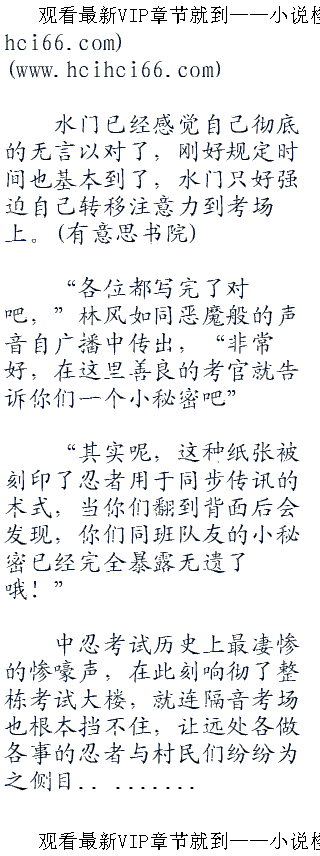 观看最新VIP章节就到——小说检
hci66.com)
(www.hcihci66.com)
水门已经感觉自己彻底
的无言以对了，刚好规定时
间也基本到了，水门只好强
迫自己转移注意力到考场
上。(有意思书院)
“各位都写完了对
吧，”林风如同恶魔般的声
音自广播中传出，“非常
好，在这里善良的考官就告
诉你们一个小秘密吧”
“其实呢，这种纸张被
刻印了忍者用于同步传讯的
术式，当你们翻到背面后会
发现，你们同班队友的小秘
密已经完全暴露无遗了
哦！”
中忍考试历史上最凄惨
的惨嚎声，在此刻响彻了整
栋考试大楼，就连隔音考场
也根本挡不住，让远处各做
各事的忍者与村民们纷纷为
之侧目.. .......
观看最新VIP章节就到——小说检